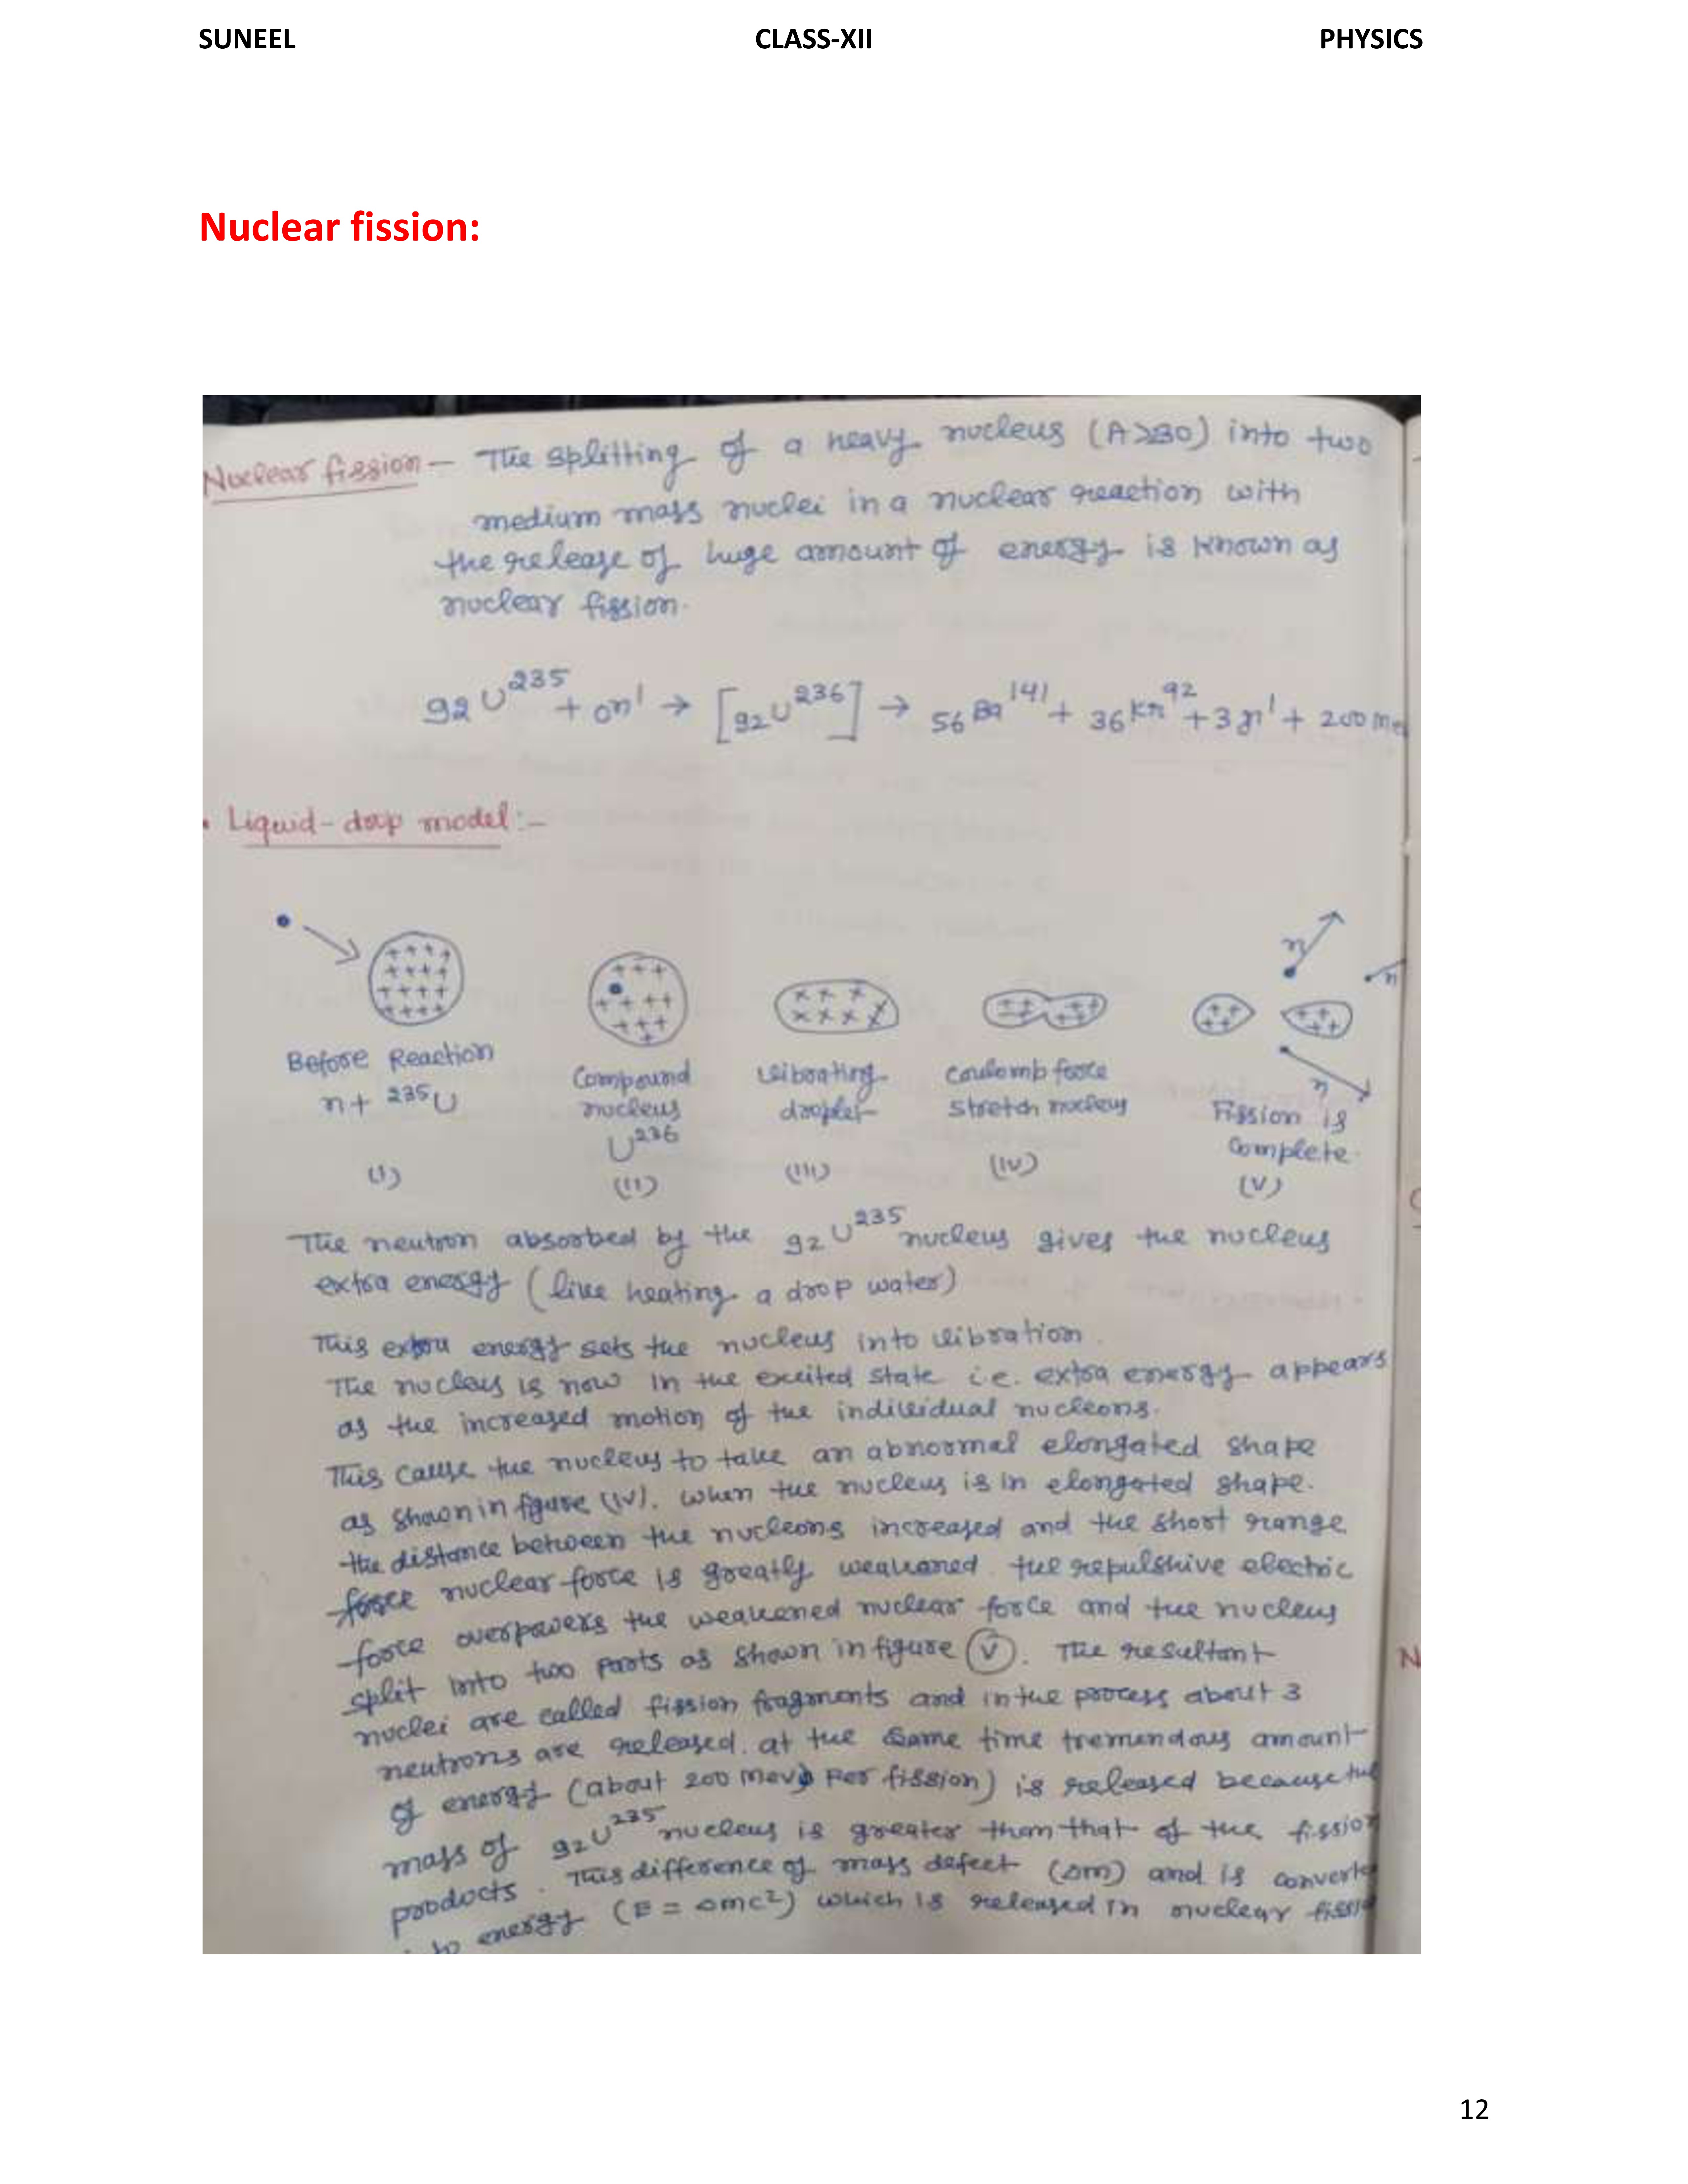 SUNEEL CLASS-XII PHYSICS
Nuclear fission:
Nuclear fission – The splitting of a heavy nucleus (A>230) into two
medium mass nuclei in a nuclear reaction with
the release of huge amount of energy is known as
nuclear fission.
₉₂U²³⁵ + ₀n¹ → [₉₂U²³⁶] → ₅₆Ba¹⁴¹ + ₃₆Kr⁹² + 3 n¹ + 200 Me
• Liquid-drop model:–
n
n
n
Before Reaction
n + ²³⁵U
(I)
Compound
nucleus
U²³⁶
(II)
vibrating
droplet
(III)
Coulomb force
stretch nucleus
(IV)
Fission is
Complete.
(V)
The neutron absorbed by the ₉₂U²³⁵ nucleus gives the nucleus
extra energy (like heating a drop water)
This extra energy sets the nucleus into vibration.
The nucleus is now in the excited state i.e. extra energy appears
as the increased motion of the individual nucleons.
This cause the nucleus to take an abnormal elongated shape
as shown in figure (IV). when the nucleus is in elongated shape.
the distance between the nucleons increased and the short range
force nuclear force is greatly weakened. the repulshive electric
force overpowers the weakened nuclear force and the nucleus
split into two parts as shown in figure (V). The resultant
nuclei are called fission fragments and in the process about 3
neutrons are released. at the same time tremendous amount
of energy (about 200 Mev) per fission) is released because the
mass of ₉₂U²³⁵ nucleus is greater than that of the fission
products. This difference of mass defect (△m) and is converte
to energy (E = △mc²) which is released in nuclear fissio
N
12